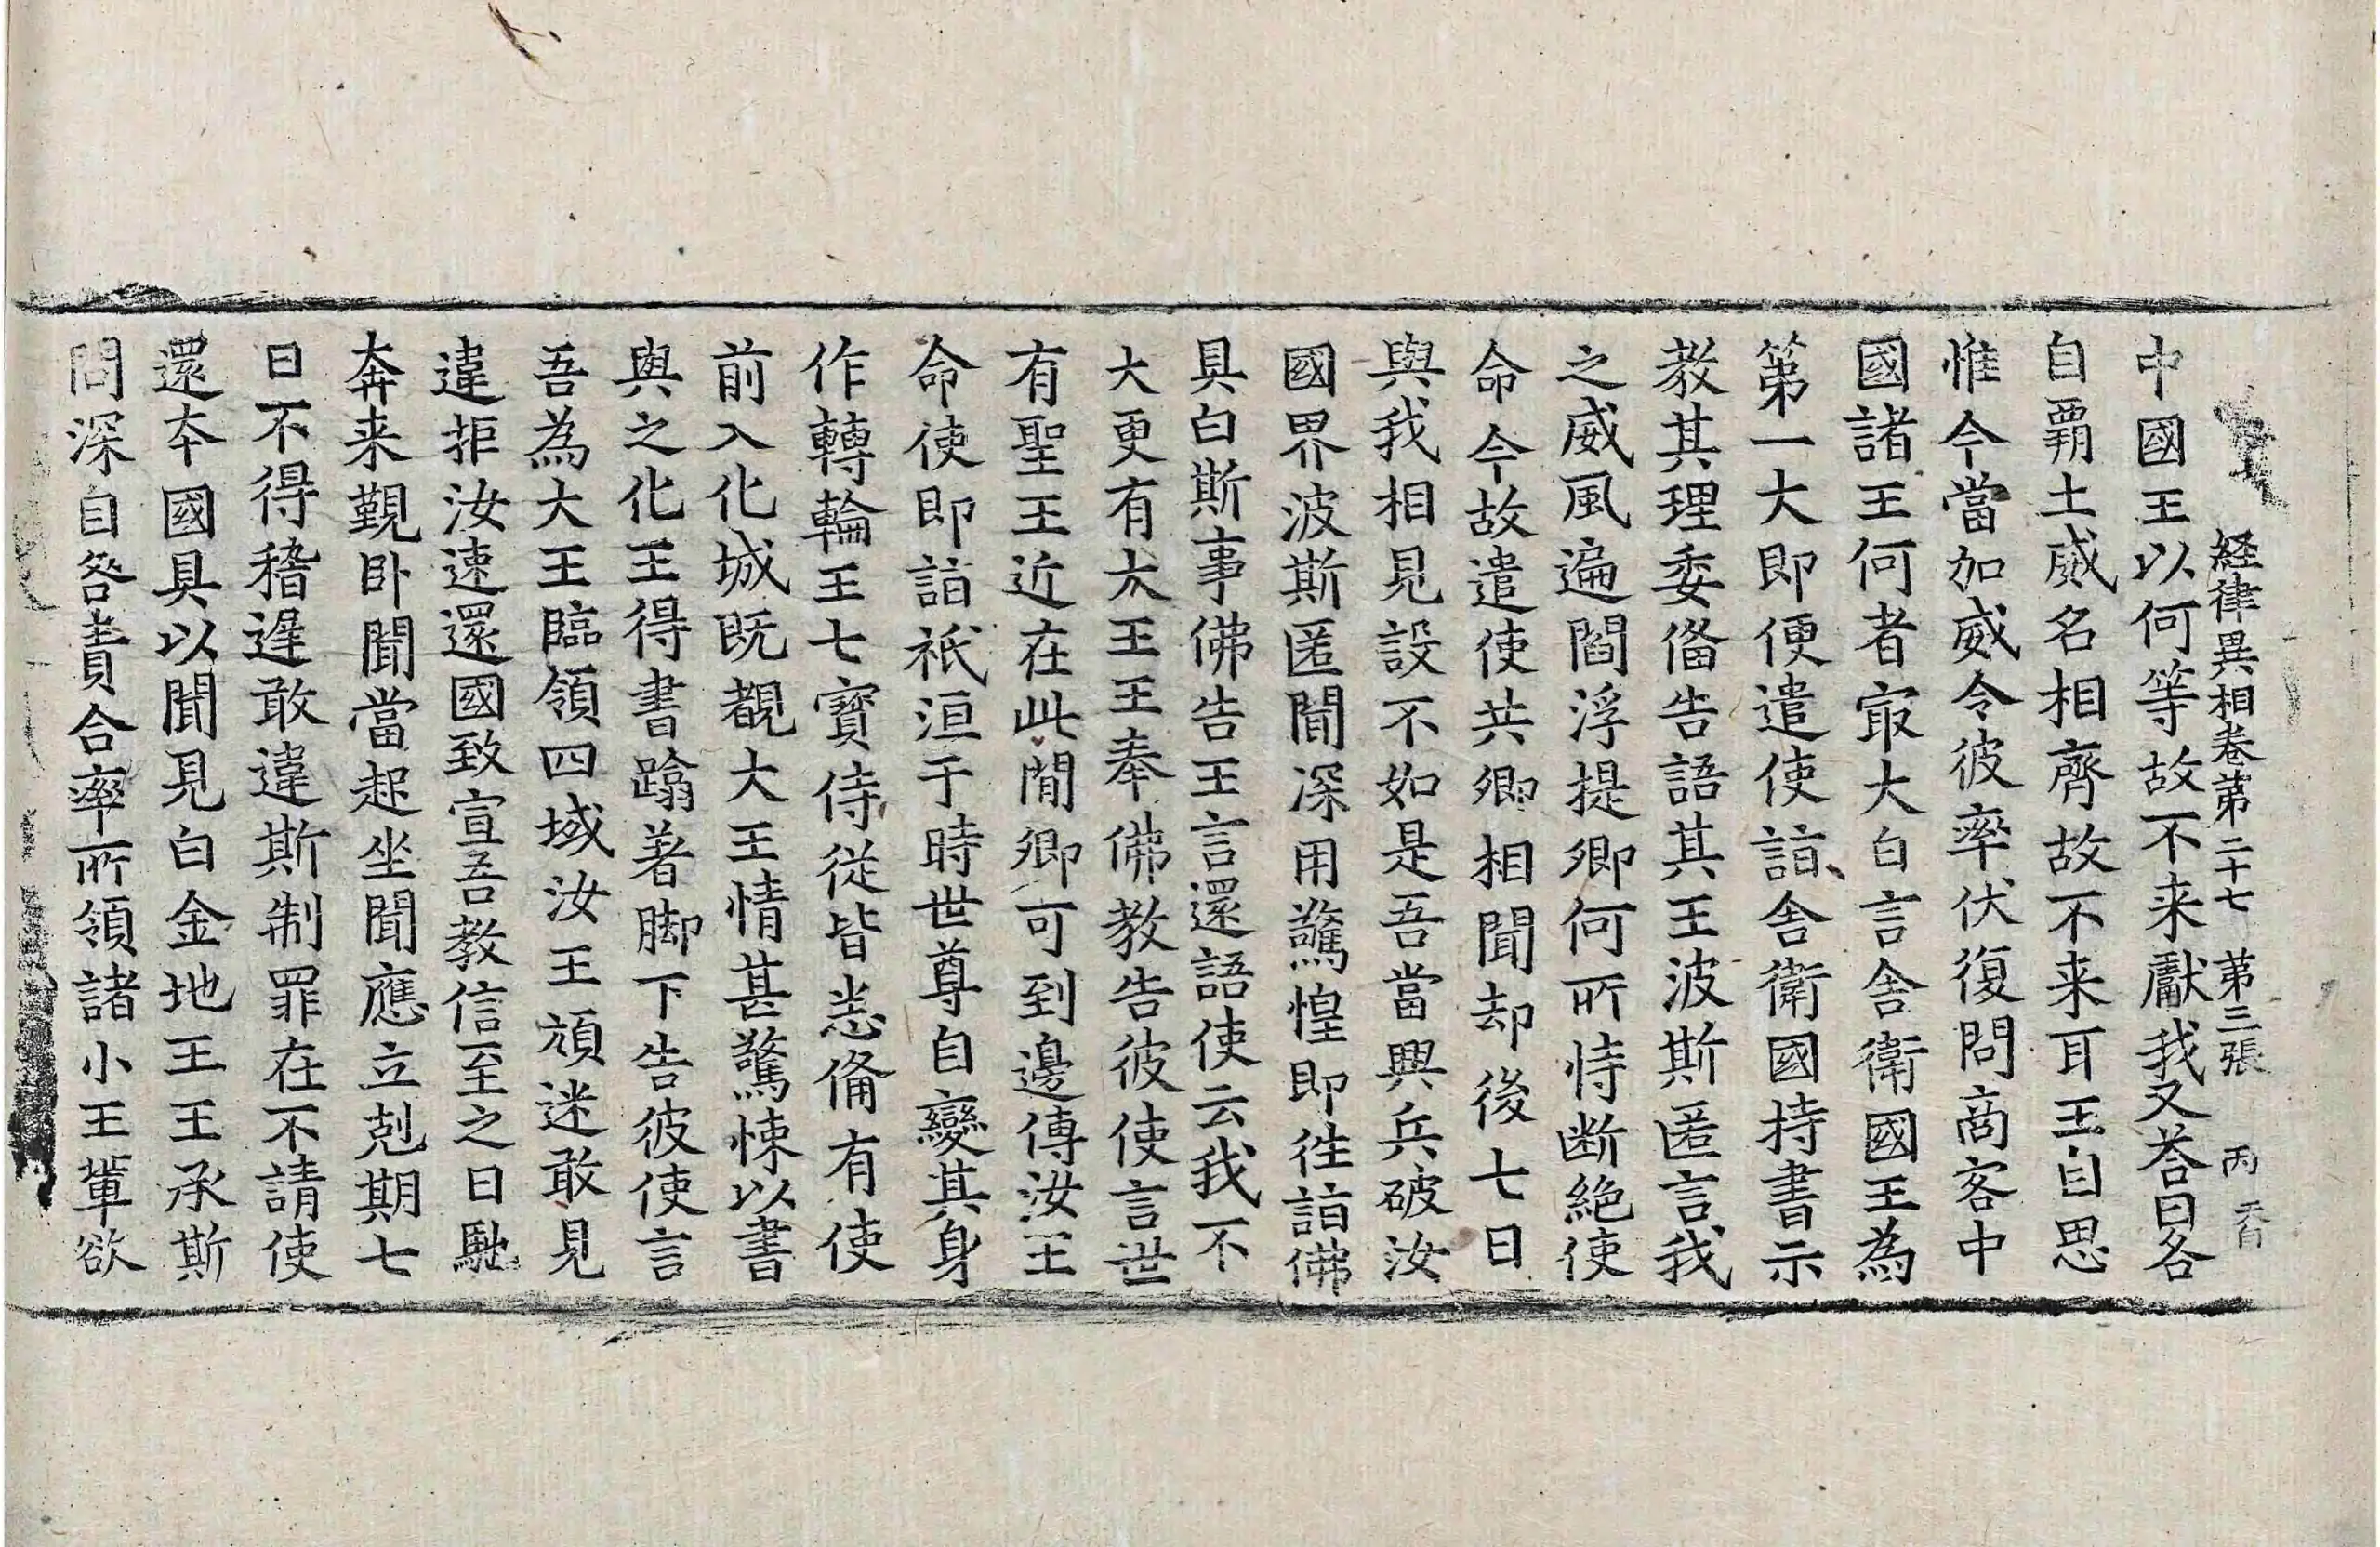 経律異相卷苐二十七 苐三張 丙
中國王以何等故不来獻我又荅曰各
自覇土威名相齊故不来耳王自思
惟今當加威令彼率伏復問商客中
國諸王何者㝡大白言舍衛國王為
第一大即便遣使詣舍衛國持書示
教其理委俻告語其王波斯匿言我
之威風遍閻浮提卿何所恃断絶使
命今故遣使共卿相聞却後七日
與我相見設不如是吾當興兵破汝
國界波斯匿聞深用驚惶即徃詣佛
具白斯事佛告王言還語使云我不
大更有大王王奉佛教告彼使言世
有聖王近在此間卿可到邊傳汝王
命使即詣祇洹于時世尊自變其身
作轉輪王七寳侍從皆悉俻有使
前入化城既覩大王情甚驚悚以書
與之化王得書蹹著脚下告彼使言
吾為大王臨領四域汝王頑迷敢見
違拒汝速還國致宣吾教信至之日馳
奔来覲卧聞當起坐聞應立剋期七
日不得稽遟敢違斯制罪在不請使
還本國具以聞見白金地王王承斯
問深自咎責合率所領諸小王軰欲